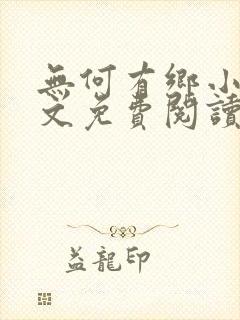 無何有鄉小
文免費閱讀
益龍印